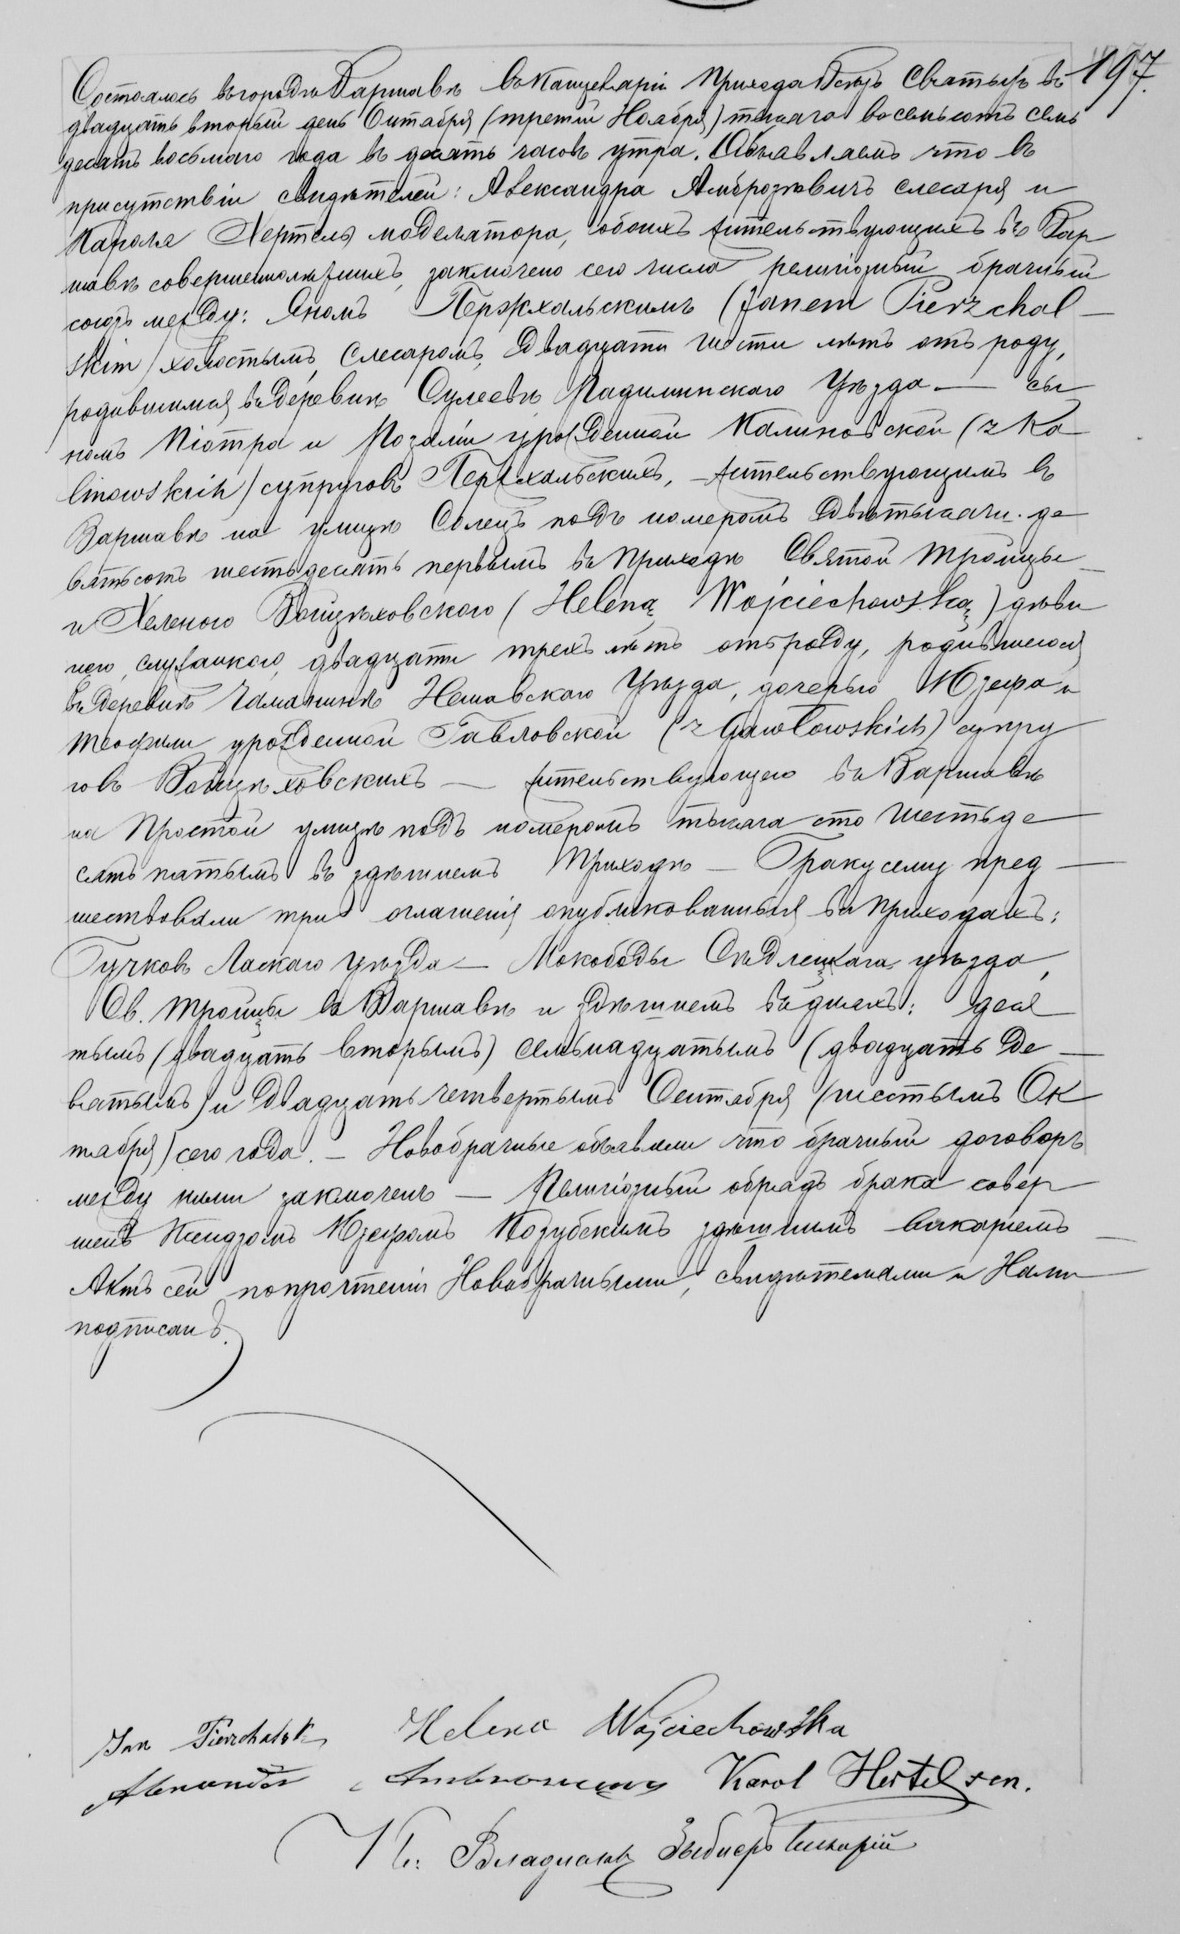 197.
Состоялось въ городѣ Варшавѣ въ Канцеляріи Прихода Всѣхъ Святыхъ въ
двадцать вторый день Октября (третій Ноября) тысяча восемьсотъ семь
десятъ восьмаго года въ десять часовъ утра. Объявляемъ что въ
присутствіи свидѣтелей: Александра Амброзѣвичъ слесаря и
Кароля Хертель моделятора, обоихъ жительствующихъ въ Вар
шавѣ совершеннолѣтнихъ, заключено сего числа религіозный брачный
союзъ между: Яномъ Пержхальскимъ (Janem Pierzchal—
skim) холостымъ, слесаромъ, двадцати шести лѣтъ отъ роду,
родившимся въ деревнѣ Сулеевѣ Радиминскаго Уѣзда — сы
номъ Піотра и Розаліи урожденной Калиновской (z Ka
linowskich) супруговъ Пержхальскихъ, — жительствующимъ въ
Варшавѣ на улицѣ Солецъ подъ номеромъ двѣ тысячи де
вятьсотъ шестьдесятъ первымъ въ Приходѣ Святой Тройцы —
и Хеленою Войцѣховскою (Heleną Wojciechowską) дѣви
цею, служанкою, двадцати трехъ лѣтъ отъ роду, родившеюся
въ деревнѣ Уѣзда, дочерью Юзефа и
Теофили урожденной Гавловской (z Gawłowskich) супру
говъ Войцѣховскихъ — жительствующею въ Варшавѣ
на Простой улицѣ подъ номеромъ тысяча сто шестьде
сятъ пятымъ въ здѣшнемъ Приходѣ — Браку сему пред—
шествовали три оглашенія опубликованныя въ Приходахъ:
Ласкаго Уѣзда — Мокободы Сѣдлецкаго уѣзда,
Св. Тройцы въ Варшавѣ и здѣшнемъ въ дняхъ: деся
тымъ (двадцать вторымъ) семьнадцатымъ (двадцать де—
вятымъ) и двадцать четвертымъ Сентября (шестымъ Ок
тября) сего года. — Новобрачные объявили что брачный договоръ
между ними заключенъ — Религіозный обрядъ брака совер
шенъ Ксендзомъ Юзефомъ Козубскимъ здѣшнимъ викаріемъ —
Актъ сей по прочтеніи Новобрачными, свидѣтелями и Нами
подписанъ.
Jan Pierzchalski Helena Wojciechowska
Alexander Ambroziewicz Karol Hertel sen.
К.